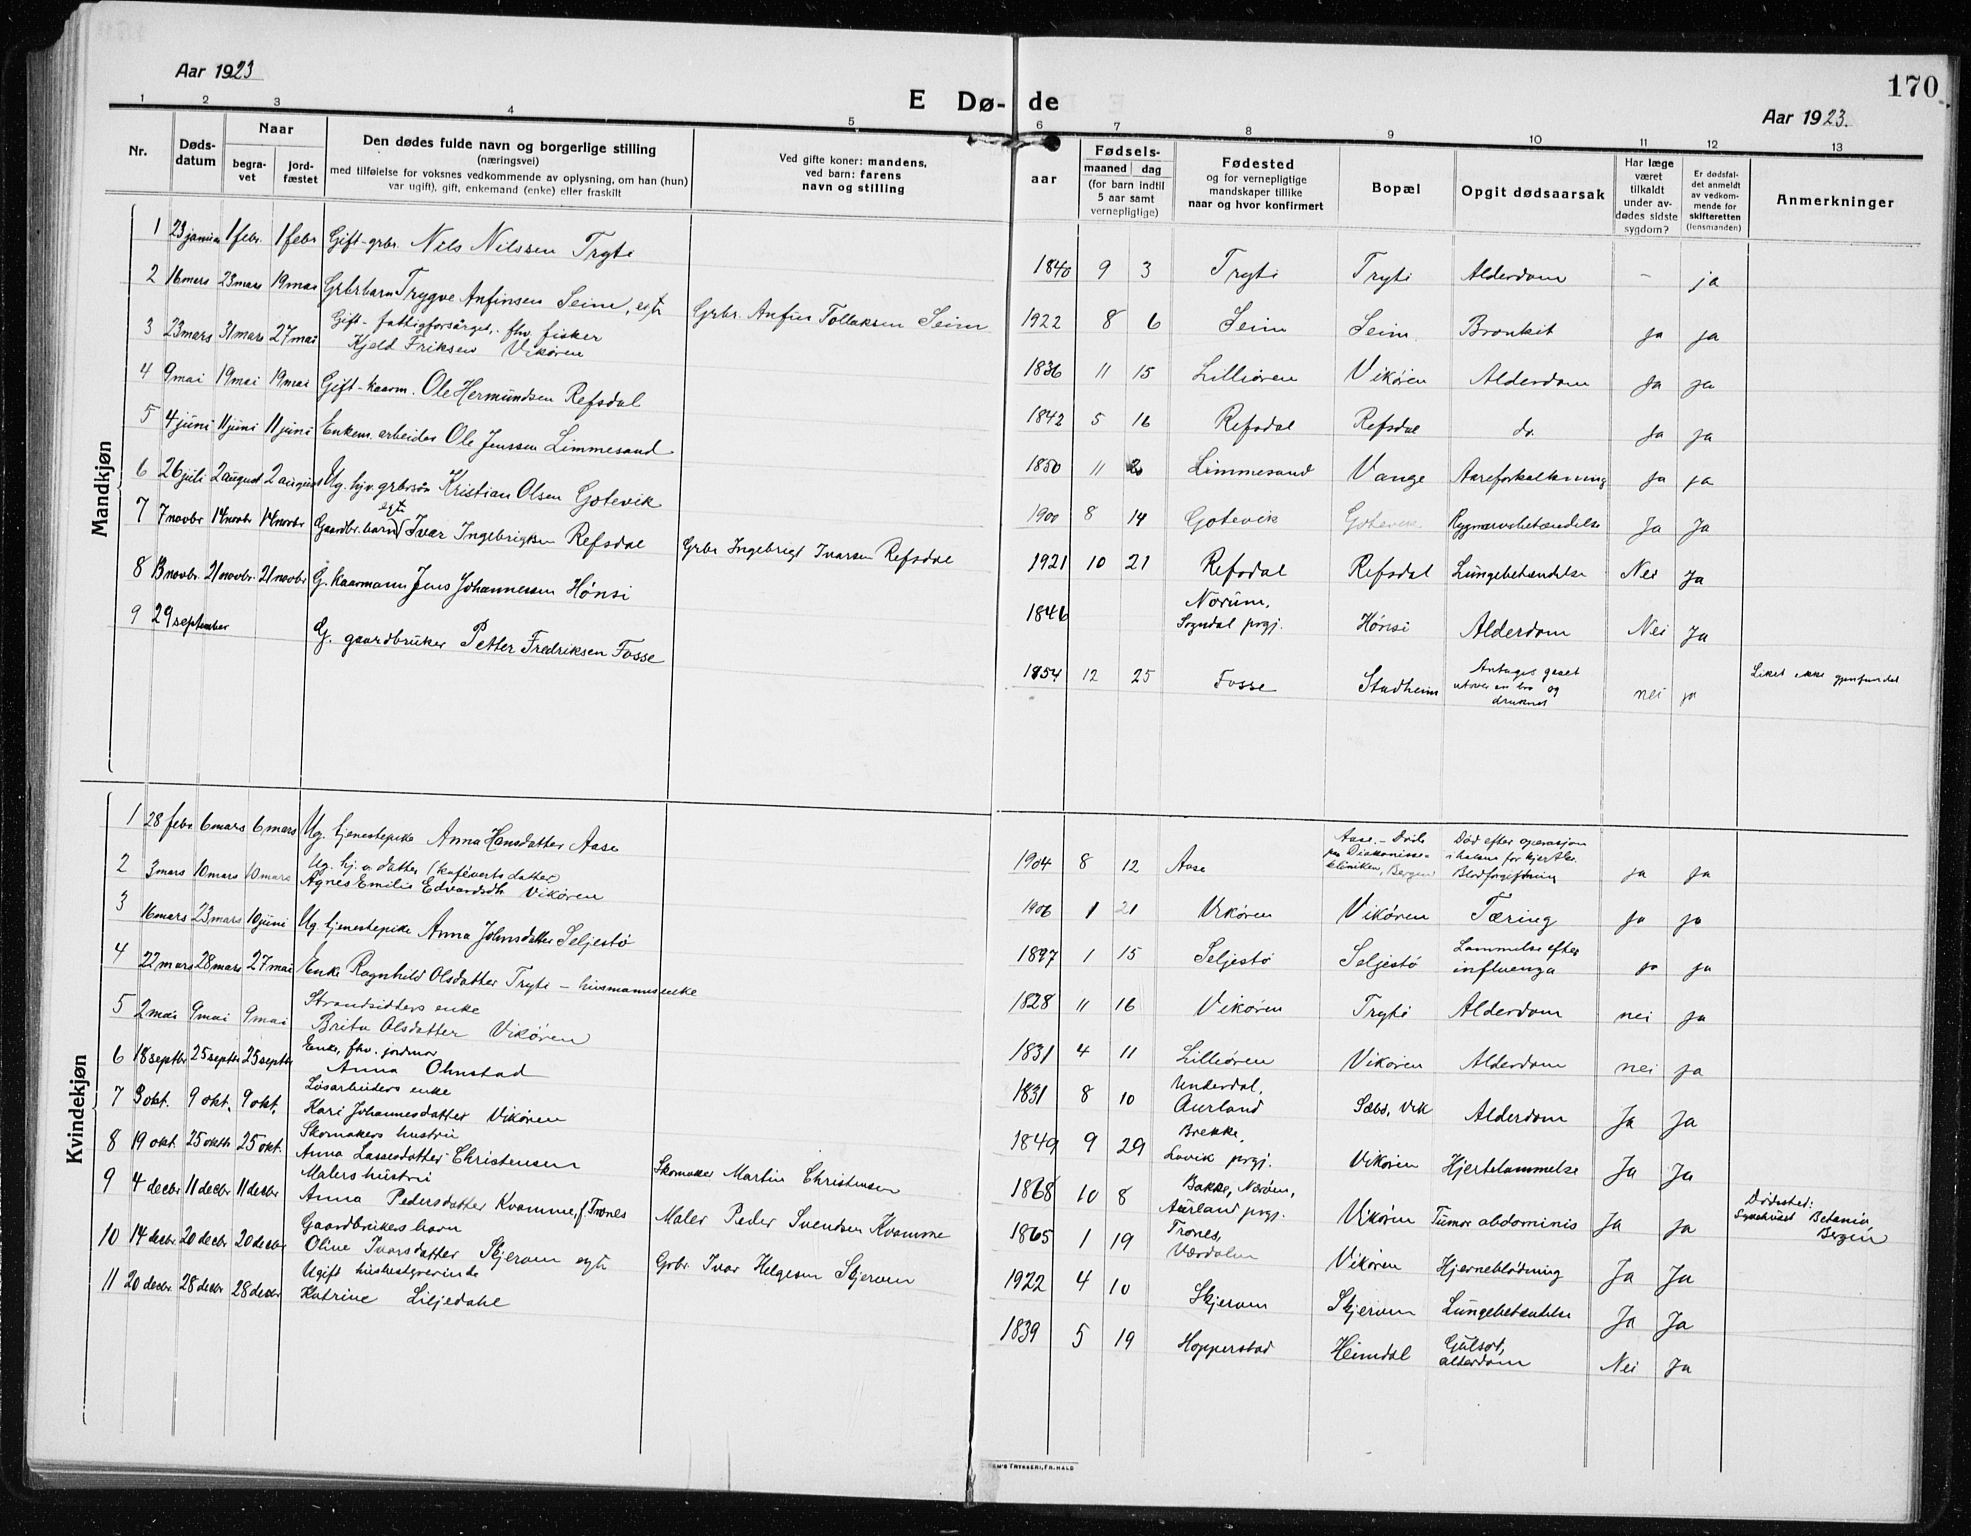 Aar 1923
E Dø-de
170
Aar 1923.
1 2 3 4 5 6 7 8 9 10 11 12 13
Nr.
Døds-
datum
Naar
begra-
vet
jord-
fæstet
Den dødes fulde navn og borgerlige stilling
(næringsvei)
med tilføielse for voksnes vedkommende av oplysning, om han (hun)
var ugift), gift, enkemand (enke) eller fraskilt
Ved gifte koner: mandens,
ved barn: farens
navn og stilling
aar
Fødsels-
maaned dag
(for barn indtil
5 aar samt
vernepligtige)
Fødested
og for vernepligtige
mandskaper tillike
naar og hvor konfirmert
Bopæl
Opgit dødsaarsak
Har læge
været
tilkaldt
under av-
dødes sidste
sygdom?
Er dødsfal-
det anmeldt
av vedkom-
mende for
skifteretten
(lensmanden)
Anmerkninger
Mandkjøn
1 23 januar 1 febr. 1 febr Gift-grbr. Nils Nilssen Tryti 1840 9 3 Tryti Tryti Alderdom - ja
2 16 mars 23 mars 19 mai Grbr barn Trygve Anfinsen Seim, egt. Grbr. Anfin Tollaksen Seim 1922 8 6 Seim Seim. Bronkit ja ja
3 23 mars 31 mars 27 mai Gift- fattigforsørget, fhv. fisker
Kjeld Eriksen Vikøren 1836 11 15 Lilliøren Vikøren Alderdom ja ja
4 9 mai 19 mai 19 mai Gift-kaarm. Ole Hermundsen Refsdal 1842 5 16 Refsdal Refsdal do. ja ja
5 4 juni 11 juni 11 juni Enkem. arbeider Ole Jenssen Limmesand 1850 11 2 Limmesand Vange Aareforkalkning ja ja
6 26 juli 2 august 2 august Ug. hjv. grbrsøn Kristian Olsen Gotevik 1900 8 14 Gotevik Gotevik Rygmarvsbetændelse Ja Ja
7 7 novbr 14 novbr 14 novbr Gaardbr. barn egt. Ivar Ingebrigtsen Refsdal Grbr Ingebrigt Ivarsen Refsdal 1921 10 21 Refsdal Refsdal Lungebetændelse Nei Ja
8 13 novbr. 21 novbr. 21 novbr G. kaarmann Jens Johannessen Hønsi 1846 Norum,
Sogndal prgj. Hønsi Alderdom Nei Ja
9 29 september G. gaardbruker Petter Fredriksen Fosse 1854 12 25 Fosse Stadheim Antages gaaet
utover en bro og
druknet nei ja Liket ikke gjenfundet
Kvindekjøn
1 28 febr 6 mars 6 mars Ug. tjenestepike Anna Hansdatter Aase 1904 8 12 Aase Aase. - Døde
paa Diakonisse-
kliniken, Bergen Død efter operasjon
i halsen for kjertler.
Blodforgiftning ja ja
2 3 mars 10 mars 10 mars Ug. hj. v. datter (kafévertsdatter)
Agnes Emilie Edvardsdtr Vikøren 1906 1 21 Vikøren Vikøren Tæring ja ja
3 16 mars 23 mars 10 juni Ug. tjenestepike Anna Johnsdatter Seljestø 1897 1 15 Seljestø Seljestø Lammelse efter
influenza ja ja
4 22 mars 28 mars 27 mai Enke Ragnhild Olsdatter Tryti - husmannsenke 1828 11 16 Vikøren Tryti Alderdom nei ja
5 2 mai 9 mai 9 mai Strandsidders enke
Brita Olsdatter Vikøren 1831 4 11 Lilliøren Vikøren Alderdom nei ja
6 18 septbr 25 septbr 25 septbr Enke, fhv. jordmor
Anna Ohnstad 1831 8 10 Underdal,
Aurland Sæbø, Vik Alderdom Ja Ja
7 3 okt. 9 okt. 9 okt. Løsarbeiders enke
Kari Johannesdatter Vikøren 1849 9 29 Brekke,
Lavik prgj. Vikøren Hjertelammelse Ja Ja
8 19 okt. 25 oktbr 25 okt. Skomakers hustru
Anna Lassesdatter Christensen Skomaker Martin Christensen 1868 10 8 Bakke, Nerøen,
Aurland prgj. Vikøren Tumor abdominis Ja ja Dødssted:
Sykehuset Betania,
Bergen
9 4 decbr 11 decbr 11 decbr Malers hustru
Anna Pedersdatter Kvamme, f. Trones Maler Peder Svendsen Kvamme 1865 1 19 Trones,
Værdalen Vikøren Hjerneblødning Ja Ja
10 14 decbr. 20 decbr 20 decbr Gaardbrukers barn
Oline Ivarsdatter Skjerven egt. Grbr. Ivar Helgesen Skjerven 1922 4 10 Skjerven Skjerven Lungebetændelse Ja Ja
11 20 decbr. 28 decbr 28 decbr Ugift husbestyrerinde
Katrine Liljedahl 1839 5 19 Hopperstad Heimdal Gulsot,
alderdom Nei Ja
TRYKKERI, FR. HALD